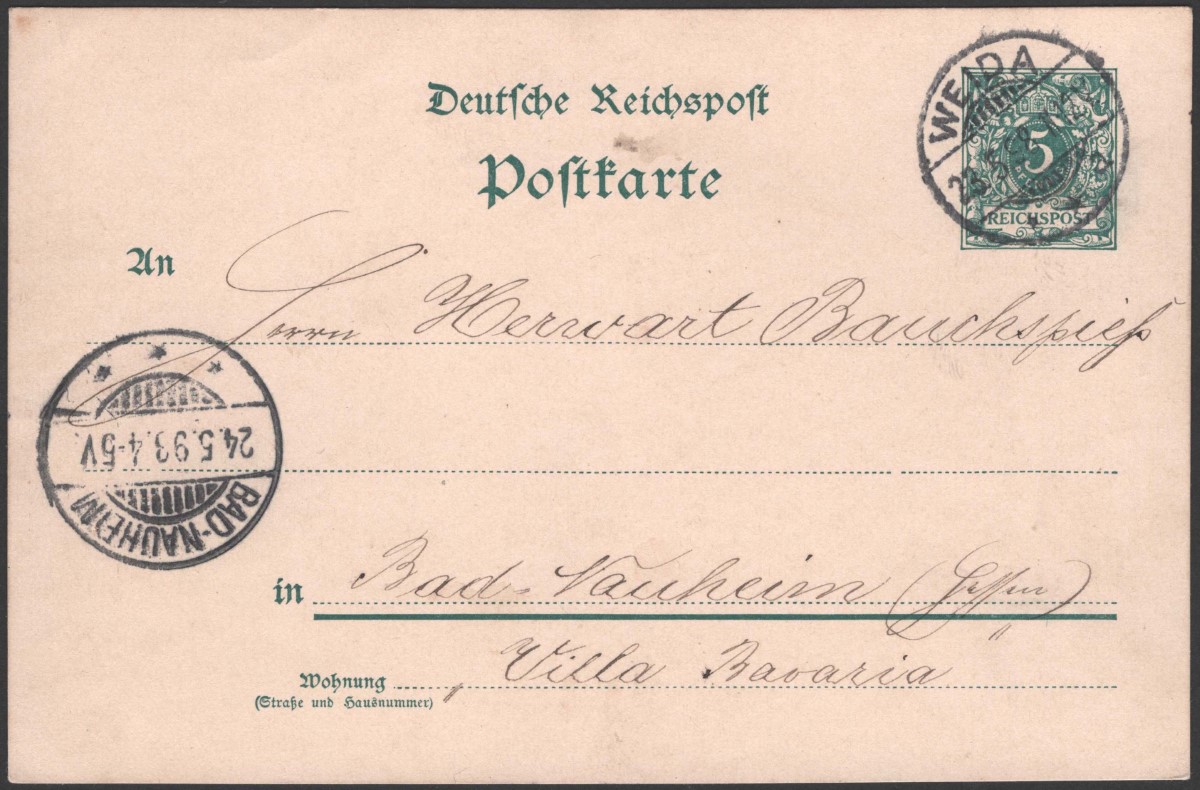 Deutsche Reichspost
Postkarte
WEIDA
5
REICHSPOST
An
Herrn Herwart Bauchspieß
24.5.93.4-5V.
BAD-NAUHEIM
in Bad-Nauheim (Hessen)
Wohnung Villa Bavaria
(Straße und Hausnummer)